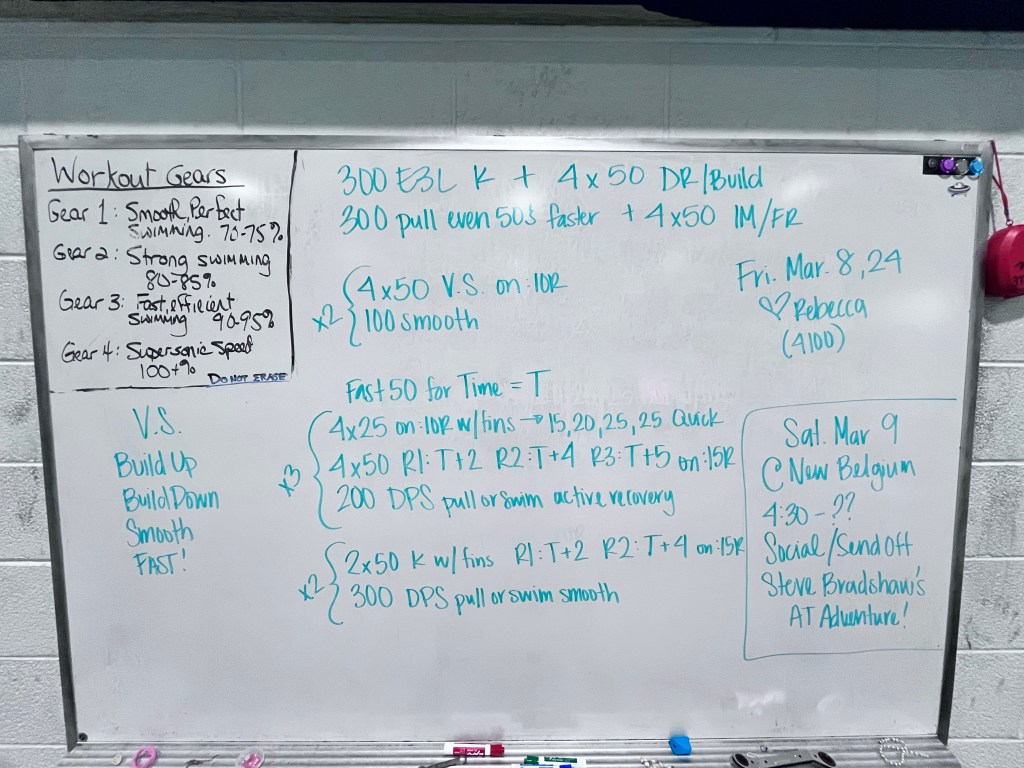 Workout Gears
Gear 1: Smooth, Perfect
Swimming. 70-75%
Gear 2: Strong swimming
80-85%
Gear 3: Fast, efficient
Swimming 90-95%
Gear 4: Supersonic Speed
100+%
DO NOT ERASE
300 E3L K + 4x50 DR/Build
300 pull even 50s faster + 4x50 IM/FR
x2 { 4x50 V.S. on :10R
100 smooth
Fri. Mar. 8, 24
♡ Rebecca
(4100)
Fast 50 for Time = T
x3 { 4x25 on :10R w/fins → 15, 20, 25, 25 Quick
4x50 R1: T+2 R2: T+4 R3: T+5 on :15R
200 DPS pull or swim active recovery
x2 { 2x50 K w/fins R1: T+2 R2: T+4 on :15R
300 DPS pull or swim smooth
V.S.
Build Up
Build Down
Smooth
FAST!
Sat. Mar 9
@ New Belgium
4:30 - ??
Social/Send Off
Steve Bradshaw's
AT Adventure!